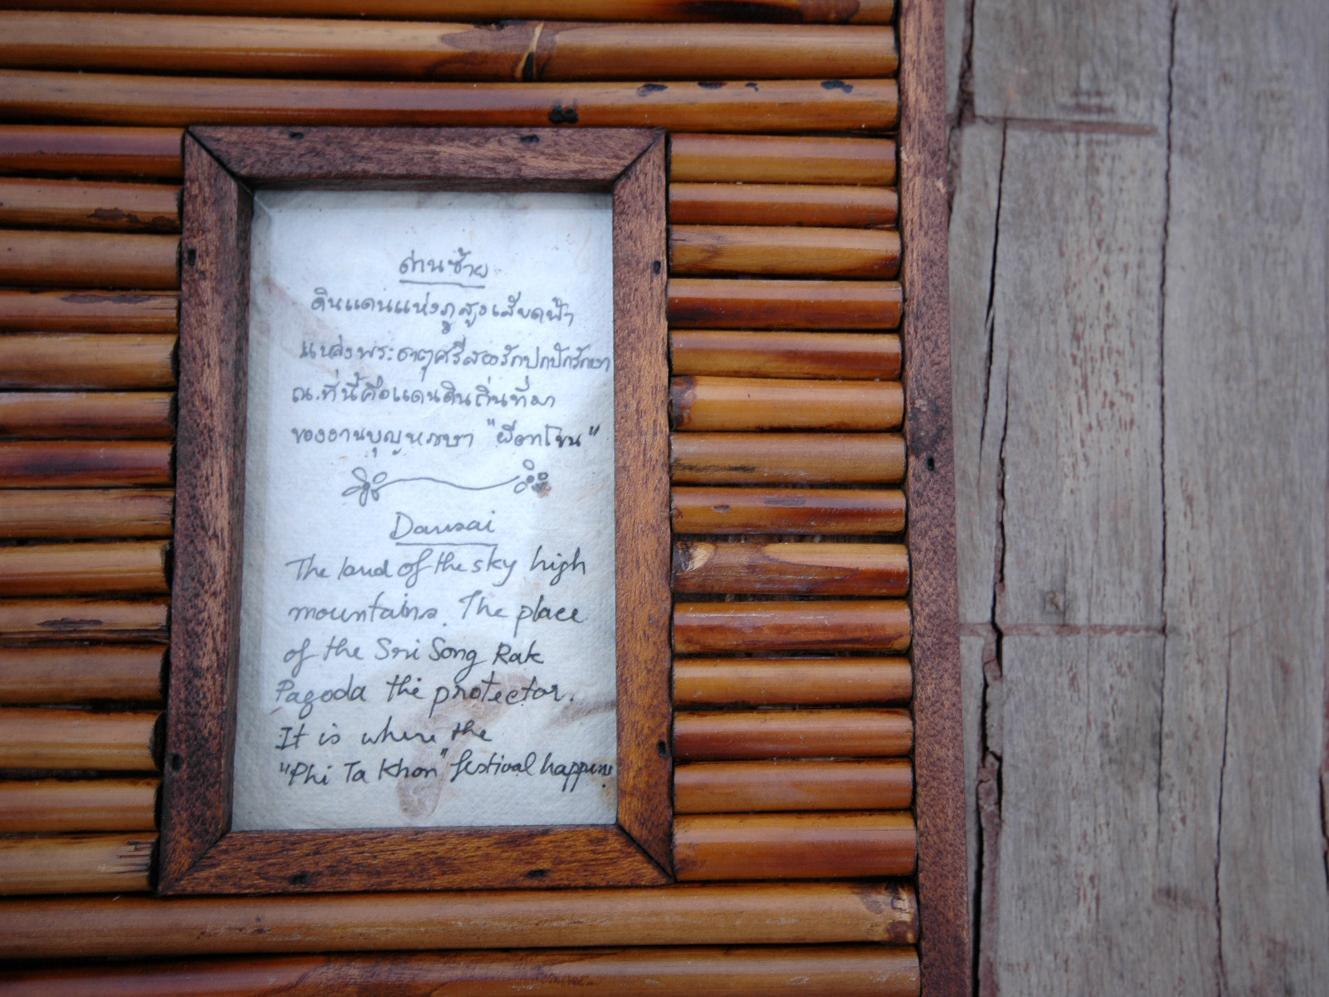 ด่านซ้าย
ดินแดนแห่งภูสูงเสียดฟ้า
แหล่งพระธาตุศรีสองรักปกปักรักษา
ณ.ที่นี้คือแดนดินถิ่นที่มา
ของงานบุญหรรษา "ผีตาโขน"
Dansai
The land of the sky high
mountains. The place
of the Sri Song Rak
Pagoda the protector.
It is where the
"Phi Ta Khon" festival happens